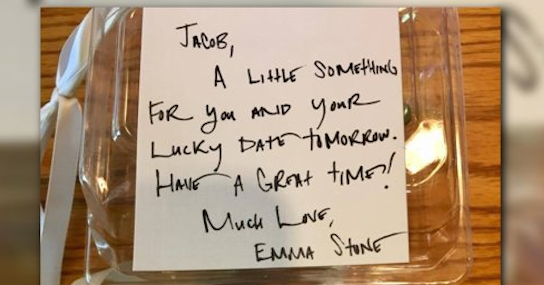 JACOB,
A LITTLE SOMETHING
FOR YOU AND YOUR
LUCKY DATE TOMORROW.
HAVE A GREAT TIME!
MUCH LOVE,
EMMA STONE